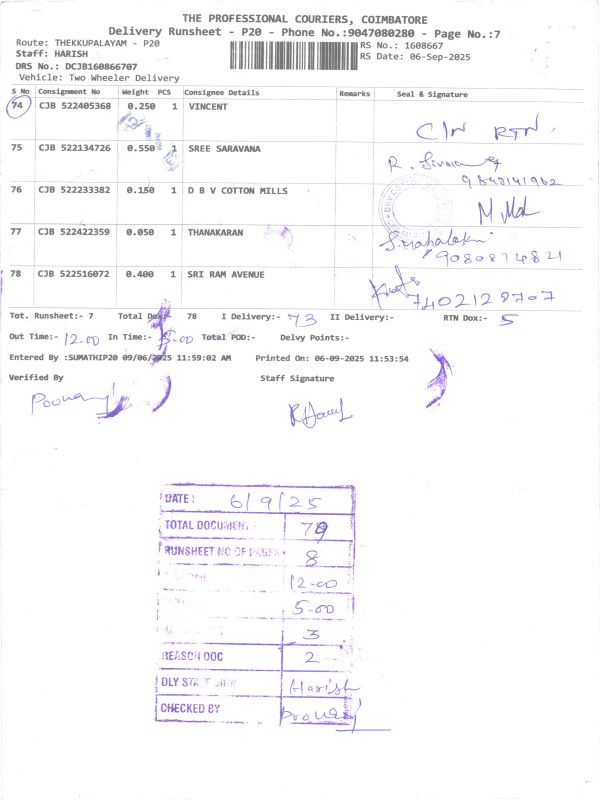 THE PROFESSIONAL COURIERS, COIMBATORE
Delivery Runsheet - P20 - Phone No.:9047080280 - Page No.:7
Route: THEKKUPALAYAM - P20
RS No.: 1608667
Staff: HARISH
RS Date: 06-Sep-2025
DRS No.: DCJB160866707
Vehicle: Two Wheeler Delivery
S No Consignment No Weight PCS Consignee Details Remarks Seal & Signature
74 CJB 522405368 0.250 1 VINCENT
C/N RTN
75 CJB 522134726 0.550 1 SREE SARAVANA
9840141962
76 CJB 522233382 0.150 1 D B V COTTON MILLS
77 CJB 522422359 0.050 1 THANAKARAN
S. Mahalakmi
9080874821
78 CJB 522516072 0.400 1 SRI RAM AVENUE
7402129707
Tot. Runsheet:- 7 Total Dox:- 78 I Delivery:- 73 II Delivery:- RTN Dox:- 5
Out Time:- 12-00 In Time:- 5-00 Total POD:- Delvy Points:-
Entered By :SUMATHIP20 09/06/2025 11:59:02 AM Printed On: 06-09-2025 11:53:54
Verified By Staff Signature
DATE: 6/9/25
TOTAL DOCUMENTS
RUNSHEET NO OF PAGES 8
12-00
5-00
3
REASON DOC 2
DLY STAFF SIGN Harish
CHECKED BY